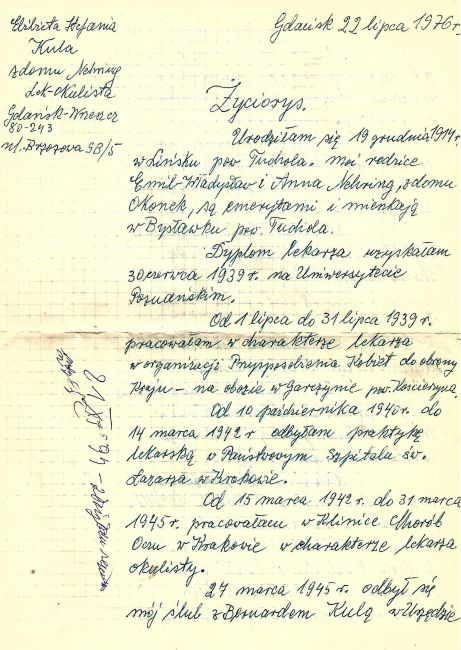 Elżbieta Stefania
Kula
z domu Nehring
Lek-okulista
Gdańsk-Wrzeszcz
80-243
ul. Brzozowa 9B/5
Gdańsk 22 lipca 1976 r.
Życiorys.
Urodziłam się 19 grudnia 1914 r.
w Lińsku pow Tuchola. moi rodzice
Emil-Władysław i Anna Nehring, z domu
Okonek, są emerytami i mieszkają
w Bysławku pow. Tuchola.
Dyplom lekarza uzyskałam
30 czerwca 1939 r. na Uniwersytecie
Poznańskim.
Od 1 lipca do 31 lipca 1939 r.
pracowałam w charakterze lekarza
w organizacji Przysposobienia Kobiet do obrony
Kraju – na obozie w Garczynie pow. Kościerzyna.
Od 10 października 1940 r. do
14 marca 1942 r odbyłam praktykę
lekarską w Państwowym Szpitalu św.
Łazarza w Krakowie.
Od 15 marca 1942 r. do 31 marca
1945 r. pracowałam w Klinice Chorób
Oczu w Krakowie w charakterze lekarza
okulisty.
27 marca 1945 r. odbył się
mój ślub z Bernardem Kulą w Urzędzie